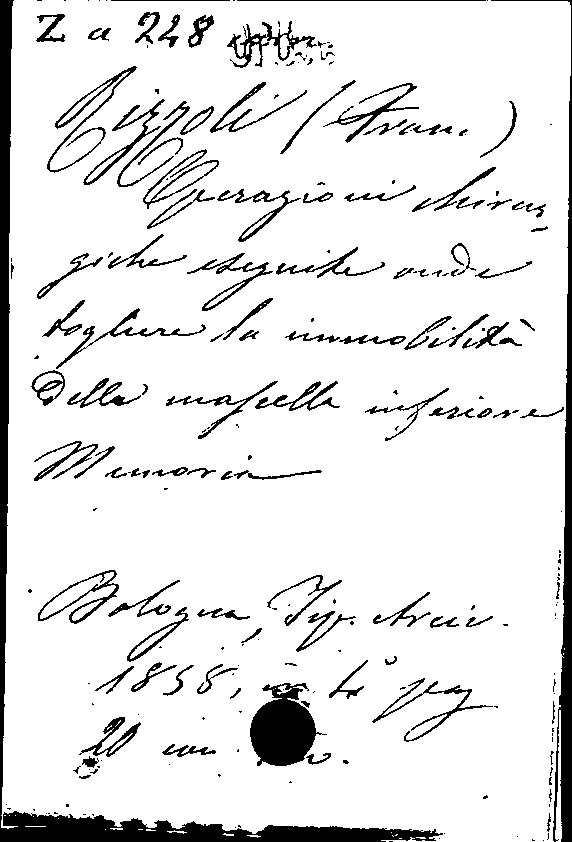 Z a 228
Rizzoli (Fran.)
Operazioni chirur-
giche eseguite onde
togliere la immobilità
della mascella inferiore
Memoria
Bologna, Tip. Arciv.
1858, in 4º pag
20 con